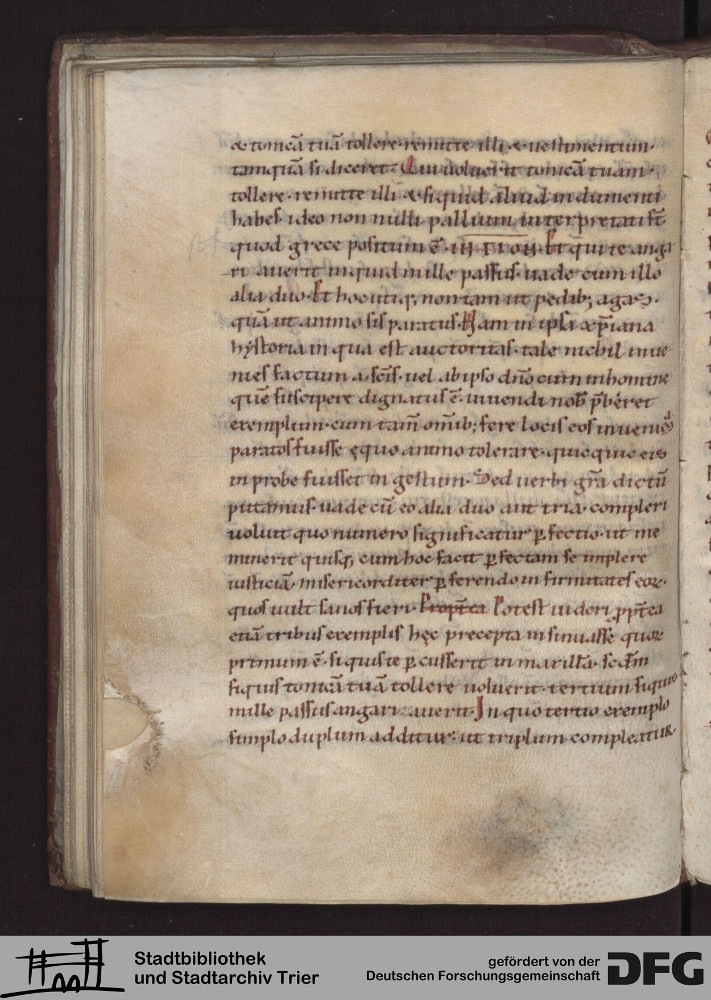 & tonicā tuā tollere· remitte illi & uestimentum·
tamquā si diceret· Qui uoluerit tonicā tuam·
tollere· remitte illi & siquid aliud indumenti
habes· ideo non nulli pallium interpretati st̄
quod grece positum ē· Et qui te anga
ri auerit inquid mille passus· uade cum illo
alia duo· Et hoc utiq; non tam ut pedib; agas·
quā ut animo sis paratus· Nam in ipsa xp̄iana
hystoria in qua est auctoritas· tale nichil inue
nies factum a sc̄is· uel ab ipso dn̄o cum in homine
quē suscipere dignatus ē· uiuendi nob̄ p̄beret
exemplum· cum tam̄ om̄ib; fere locis eos inuenies
paratos fuisse ęquo animo tolerare· quicquic eis
in probe fuisset in gestum· Sed uerbi gr̄a dictū
putamus· uade cū eo alia duo aut tria compleri
uoluit quo numero significatur ꝑfectio· ut me
minerit quisq; cum hoc facit ꝑfectam se implere
iusticiā· misericorditer ꝑferendo in firmitates eoꝝ·
quos uult sanos fieri· Propt̄ea Potest uideri ꝓpt̄ea
etiā tribus exemplis hęc precepta insinuasse quoꝝ
primum ē· si quis te ꝑcusserit in maxillā· sc̄dm
si quis tonicā tuā tollere uoluerit· tertium si quis
mille passus angarizauerit· In quo tertio exemplo
simplo duplum additur· ut triplum compleatur
Stadtbibliothek
und Stadtarchiv Trier
gefördert von der
Deutschen Forschungsgemeinschaft
DFG